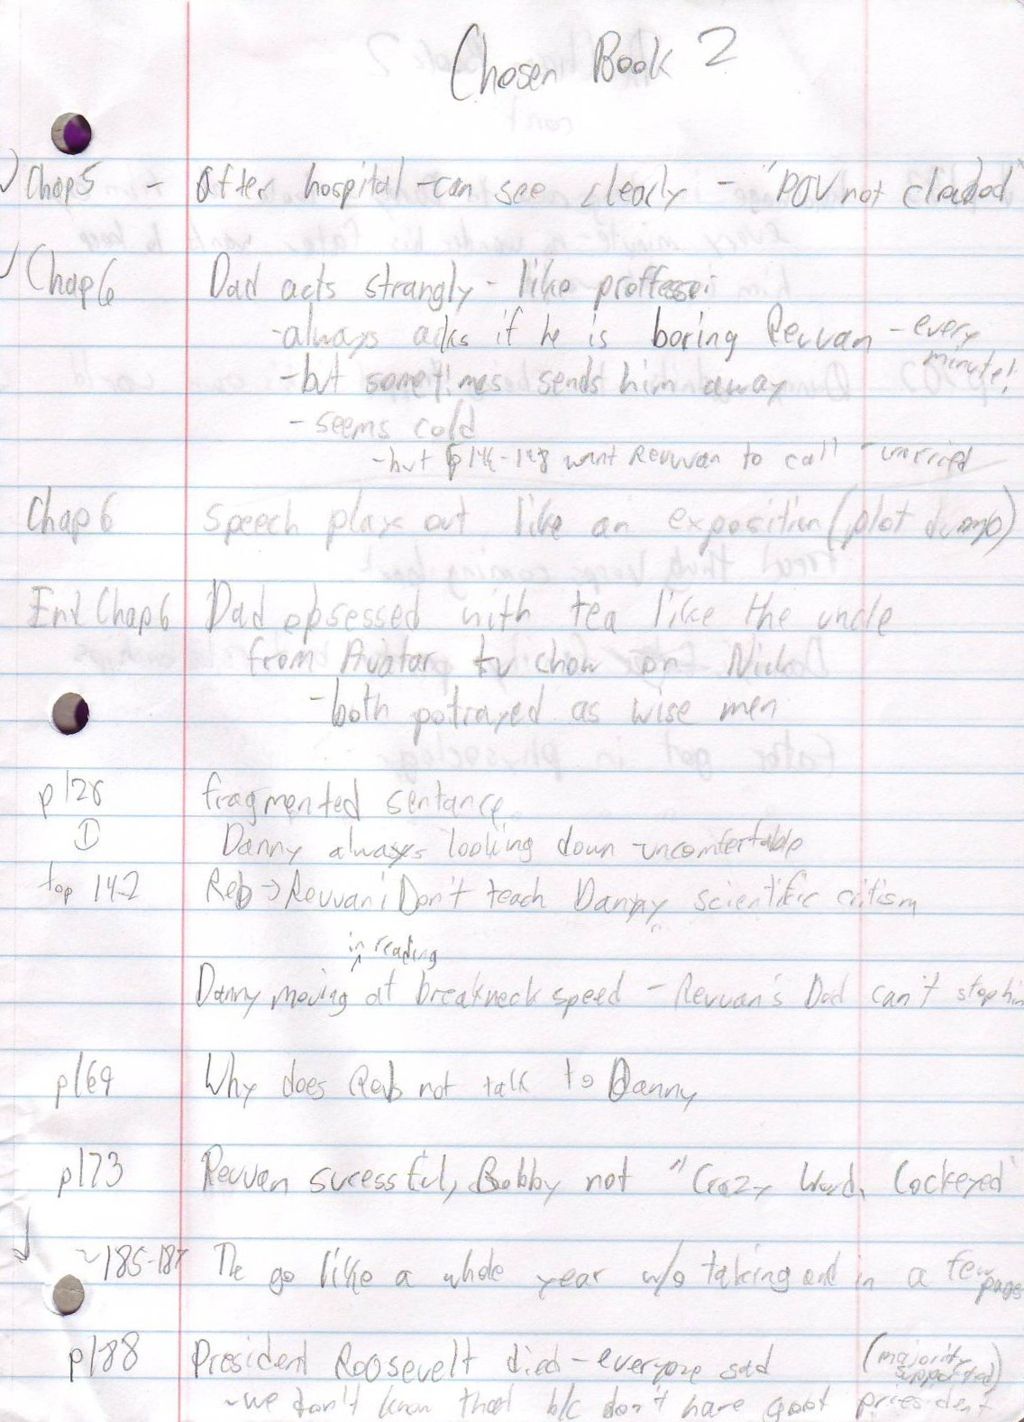 Chosen Book 2
Chap5 - After hospital - can see clearly - "POV not clouded"
Chap6 Dad acts strangly - like proffesser
-always asks if he is boring Revvan - every
minute!
-but sometimes sends him away
- seems cold
-but p146-148 want Revvan to call - worried
Chap6 Speech plays out like an exposition (plot dump)
End Chap6 Dad obsessed with tea like the uncle
from Avatar tv show on Nick
-both potrayed as wise men
p128 fragmented sentance
Danny always looking down -uncomfertable
top 142 Reb → Revvan: Don't teach Danny scientific critism
in reading
Danny moving at breakneck speed - Revvan's Dad can't stop him
p169 Why does Reb not talk to Danny
p173 Revven sucessful, Bobby not "Crazy World, Cockeyed"
~185-187 The go like a whole year w/o talking and in a few
pages
p188 President Roosevelt died - everyone sad (majority
supported)
-we don't know that b/c don't have good president